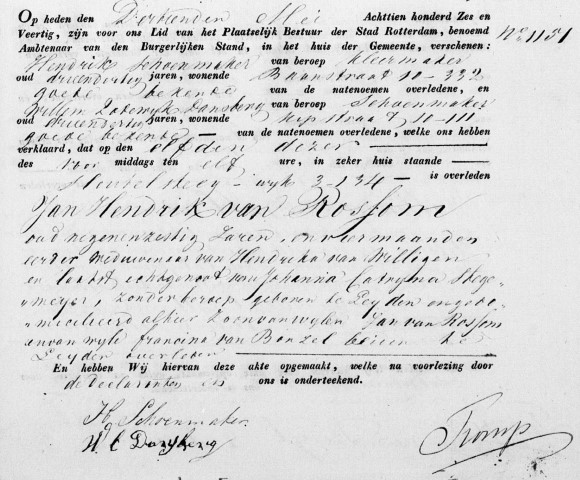 Op heden den Dertienden Mei Achttien honderd Zes en
Veertig, zijn voor ons Lid van het Plaatselijk Bestuur der Stad Rotterdam, benoemd
Ambtenaar van den Burgerlijken Stand, in het huis der Gemeente, verschenen:
No 1151
Hendrik Schoenmaker van beroep kleermaker
oud drieendertig jaren, wonende Baanstraat 10-332
goede bekende van de natenoemen overledene, en
Willem Lodewijk Dansberg van beroep Schoenmaker
oud jaren, wonende 10-111
goede bekende van de natenoemen overledene, welke ons hebben
verklaard, dat op den elfden dezer
des voor middags ten elf ure, in zeker huis staande
Sleutelsteeg wijk 3-134 is overleden
Jan Hendrik van Rossom
oud negenenzestig Jaren, en vier maanden
eerder weduwenaar van Hendrika van Willigen
en laatst echtgenoot van Johanna Catryna Stege-
meyer, zonder beroep geboren te Leyden en gedo-
micilieerd alhier Zoon van wylen Jan van Rossom
en van wyle francina van Banzel beiden te
Leyden overleden
En hebben Wij hiervan deze akte opgemaakt, welke na voorlezing door
de declaranten en ons is onderteekend.
H Schoenmaker
W L Dansberg
Tromp